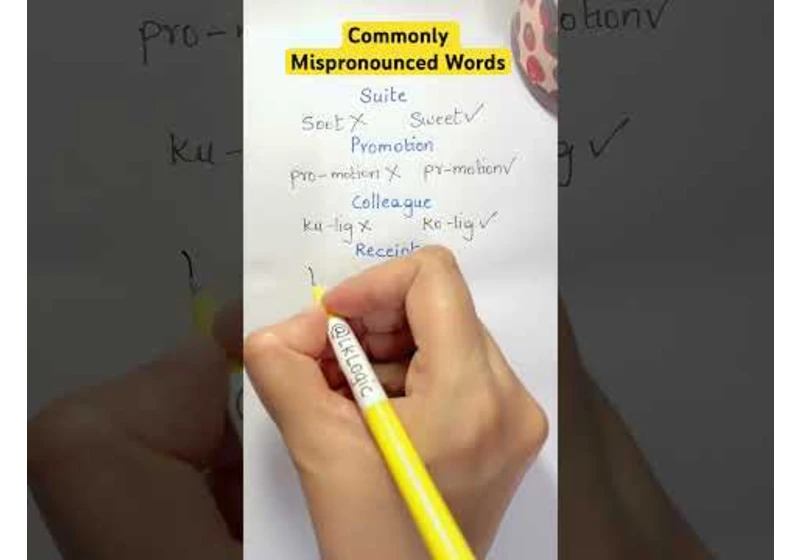 Commonly
Mispronounced Words
Suite
Soot X Sweet ✓
Promotion
pro-motion X pr-motion ✓
Colleague
ku-lig X Ko-lig ✓
Receipt
@LKLogic